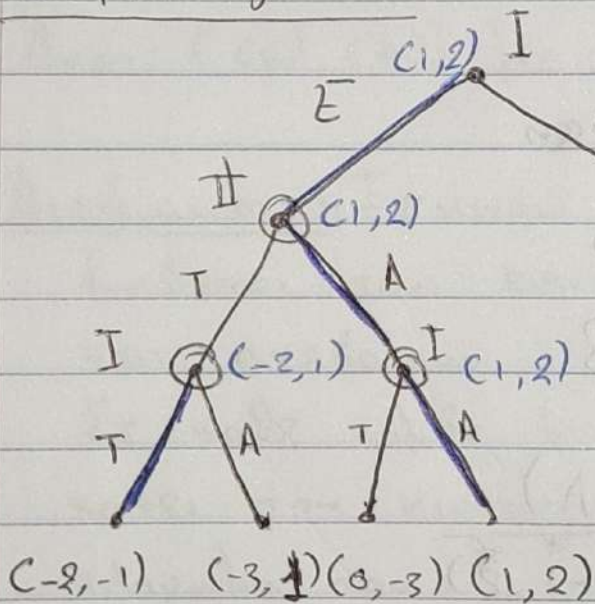 I
(1,2)
E
II
(1,2)
T
A
I
(-2,1)
I
(1,2)
T
A
T
A
(-2,-1) (-3,1) (0,-3) (1,2)